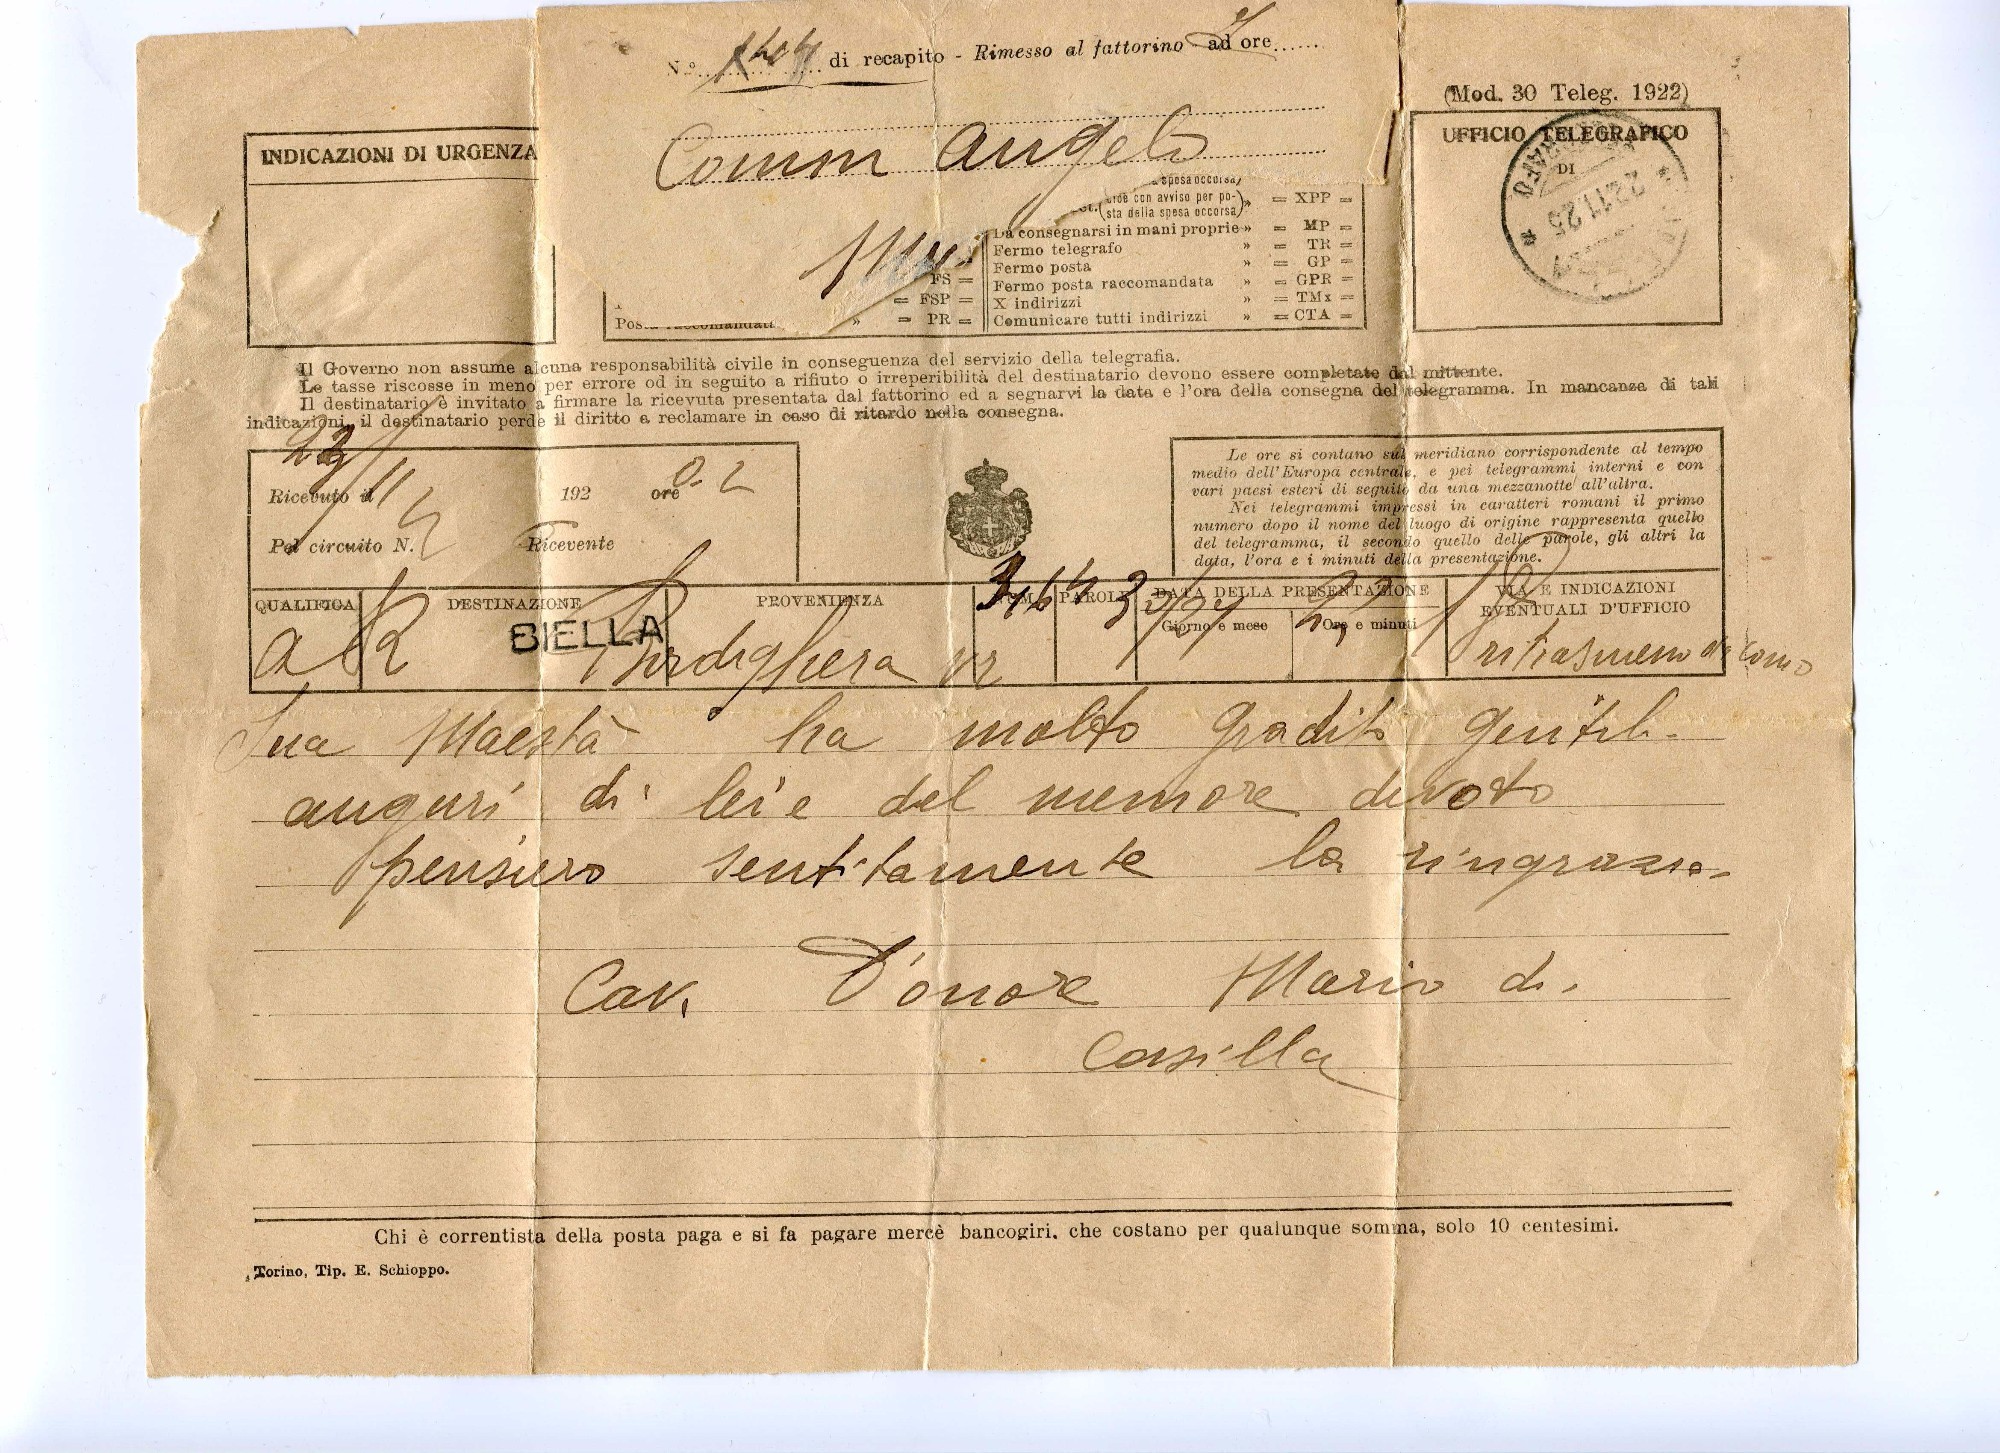 N.° di recapito - Rimesso al fattorino ad ore
(Mod. 30 Teleg. 1922)
Comm Angelo
INDICAZIONI DI URGENZA
UFFICIO TELEGRAFICO
DI
22.11.25
spesa occorsa)
con avviso per po-
sta della spesa occorsa) » = XPP =
Da consegnarsi in mani proprie » = MP =
Fermo telegrafo » = TR =
Fermo posta » = GP =
FS = Fermo posta raccomandata » = GPR =
= FSP = X indirizzi » = TMx =
» = PR = Comunicare tutti indirizzi » = CTA =
Il Governo non assume alcuna responsabilità civile in conseguenza del servizio della telegrafia.
Le tasse riscosse in meno per errore od in seguito a rifiuto o irreperibilità del destinatario devono essere completate dal mittente.
Il destinatario è invitato a firmare la ricevuta presentata dal fattorino ed a segnarvi la data e l'ora della consegna del telegramma. In mancanza di tali
indicazioni, il destinatario perde il diritto a reclamare in caso di ritardo nella consegna.
Ricevuto il 192 ore
Pel circuito N. Ricevente
Le ore si contano sul meridiano corrispondente al tempo
medio dell'Europa centrale, e pei telegrammi interni e con
vari paesi esteri di seguito da una mezzanotte all'altra.
Nei telegrammi impressi in caratteri romani il primo
numero dopo il nome del luogo di origine rappresenta quello
del telegramma, il secondo quello delle parole, gli altri la
data, l'ora e i minuti della presentazione.
QUALIFICA DESTINAZIONE PROVENIENZA NUM. PAROLE DATA DELLA PRESENTAZIONE VIA E INDICAZIONI
Giorno e mese Ore e minuti EVENTUALI D'UFFICIO
BIELLA Bordighera
Sua Maestà ha molto gradito gentili
auguri di lei e del memore devoto
pensiero sentitamente la ringrazia.
Cav. D'onore Mario di
Casilla
Chi è correntista della posta paga e si fa pagare mercè bancogiri, che costano per qualunque somma, solo 10 centesimi.
Torino, Tip. E. Schioppo.